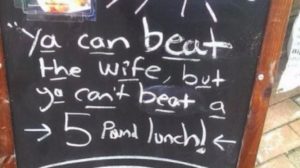 "Ya can beat
the wife, but
ya can't beat a
→ 5 Pand lunch! ←